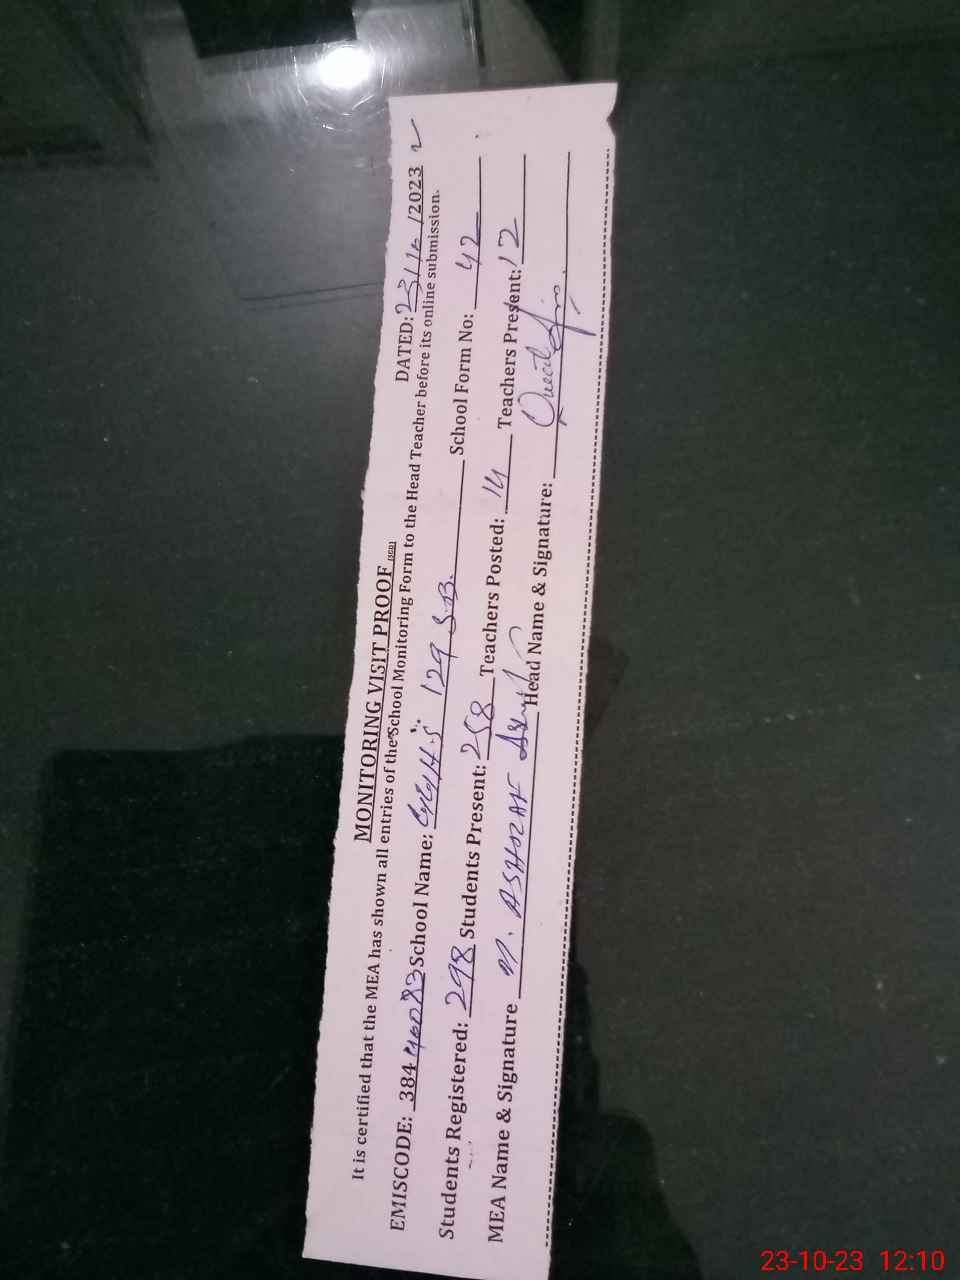 MONITORING VISIT PROOF (SED)
DATED: 23/10/2023
It is certified that the MEA has shown all entries of the School Monitoring Form to the Head Teacher before its online submission.
EMISCODE: 38440083 School Name: GGHS 129 SB. School Form No: 42
Students Registered: 298 Students Present: 258 Teachers Posted: 14 Teachers Present: 12
MEA Name & Signature M. ASHRAF Head Name & Signature:
23-10-23 12:10